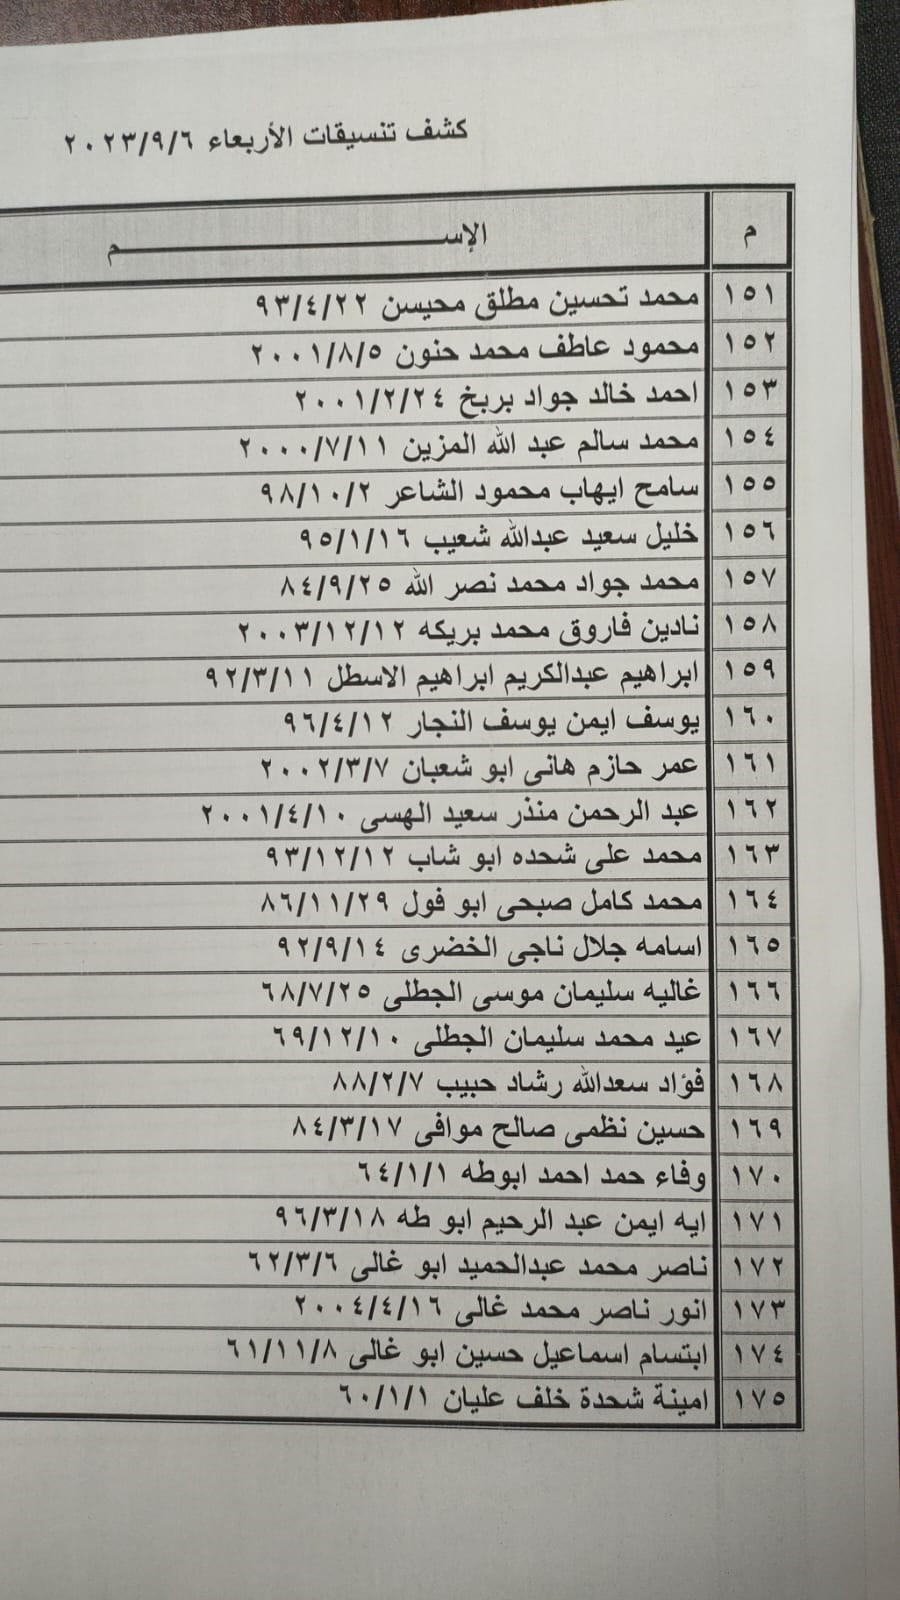 كشف تنسيقات الأربعاء ٢٠٢٣/٩/٦
م الإســـــــــــــــم
١٥١ محمد تحسين مطلق محيسن ٩٣/٤/٢٢
١٥٢ محمود عاطف محمد حنون ٢٠٠١/٨/٥
١٥٣ احمد خالد جواد بربخ ٢٠٠١/٢/٢٤
١٥٤ محمد سالم عبد الله المزين ٢٠٠٠/٧/١١
١٥٥ سامح ايهاب محمود الشاعر ٩٨/١٠/٢
١٥٦ خليل سعيد عبدالله شعيب ٩٥/١/١٦
١٥٧ محمد جواد محمد نصر الله ٨٤/٩/٢٥
١٥٨ نادين فاروق محمد بريكه ٢٠٠٣/١٢/١٢
١٥٩ ابراهيم عبدالكريم ابراهيم الاسطل ٩٢/٣/١١
١٦٠ يوسف ايمن يوسف النجار ٩٦/٤/١٢
١٦١ عمر حازم هانى ابو شعبان ٢٠٠٢/٣/٧
١٦٢ عبد الرحمن منذر سعيد الهسى ٢٠٠١/٤/١٠
١٦٣ محمد على شحده ابو شاب ٩٣/١٢/١٢
١٦٤ محمد كامل صبحى ابو فول ٨٦/١١/٢٩
١٦٥ اسامه جلال ناجى الخضرى ٩٢/٩/١٤
١٦٦ غاليه سليمان موسى الجطلى ٦٨/٧/٢٥
١٦٧ عيد محمد سليمان الجطلى ٦٩/١٢/١٠
١٦٨ فؤاد سعدالله رشاد حبيب ٨٨/٢/٧
١٦٩ حسين نظمى صالح موافى ٨٤/٣/١٧
١٧٠ وفاء حمد احمد ابوطه ٦٤/١/١
١٧١ ايه ايمن عبد الرحيم ابو طه ٩٦/٣/١٨
١٧٢ ناصر محمد عبدالحميد ابو غالى ٦٢/٣/٦
١٧٣ انور ناصر محمد غالى ٢٠٠٤/٤/١٦
١٧٤ ابتسام اسماعيل حسين ابو غالى ٦١/١١/٨
١٧٥ امينة شحدة خلف عليان ٦٠/١/١